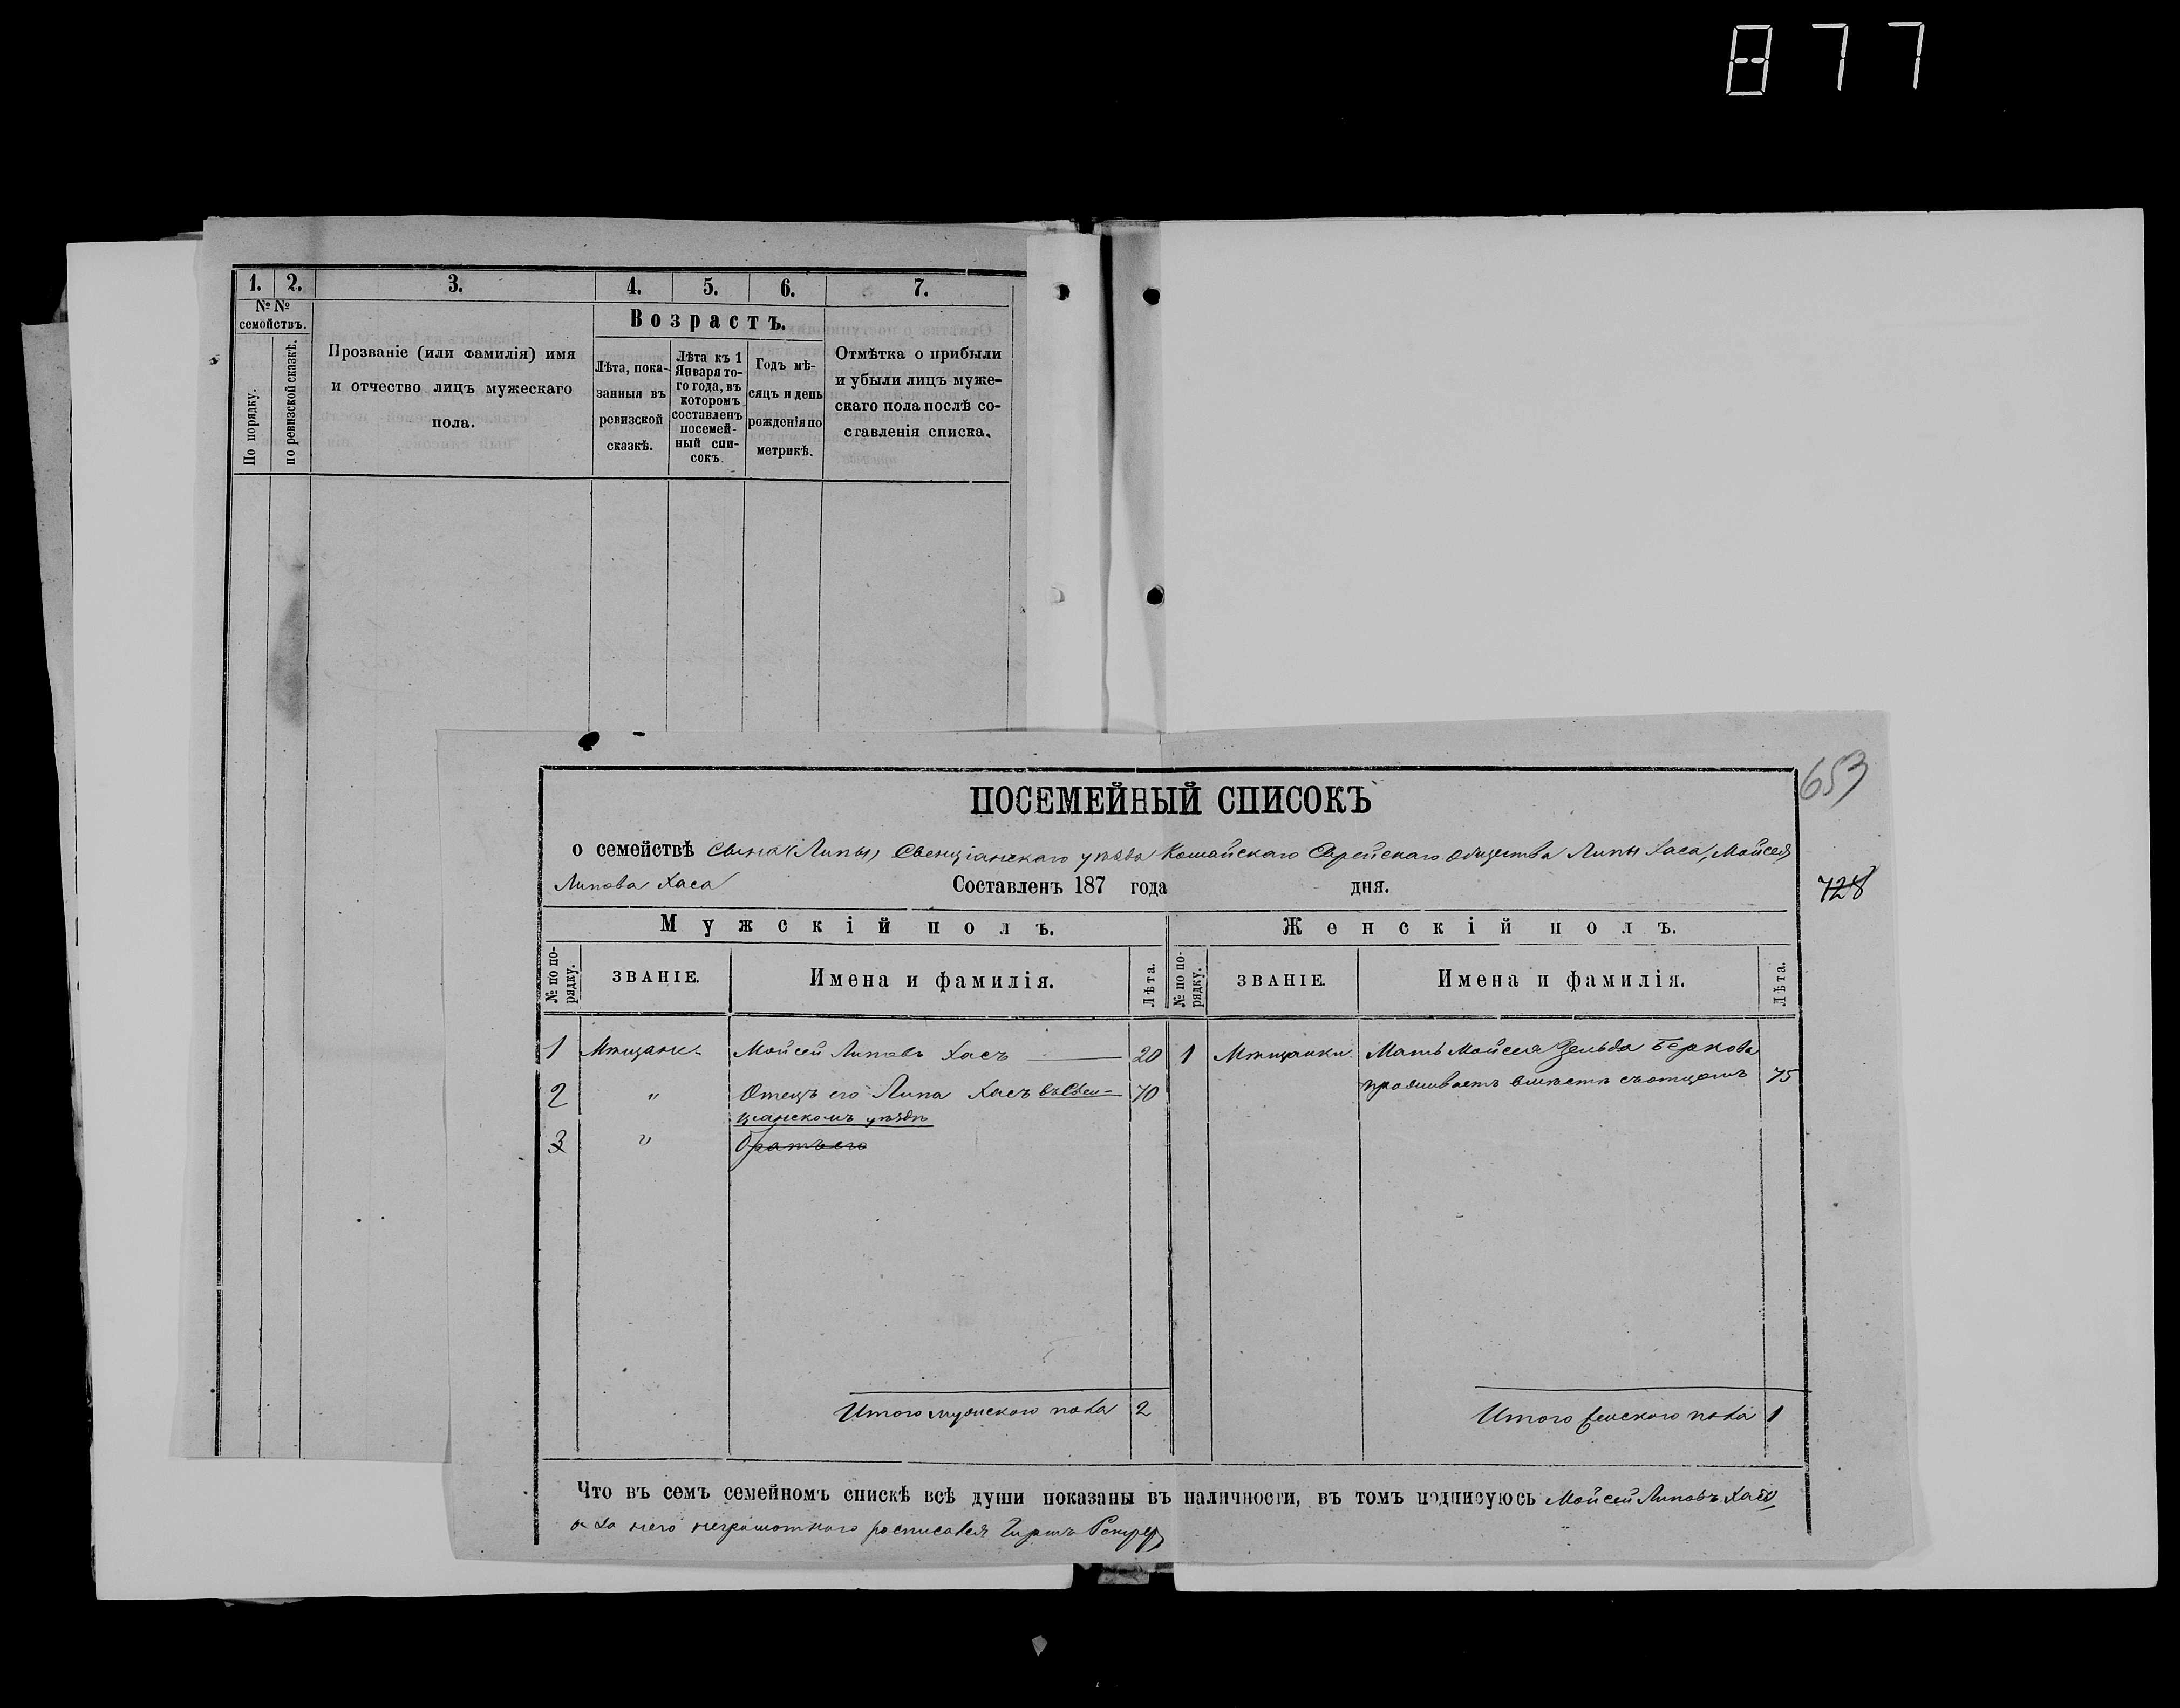 877
1. 2. 3. 4. 5. 6. 7.
№ №
семействъ.
По порядку.
по ревизской сказкѣ.
Прозваніе (или фамилія) имя
и отчество лицъ мужескаго
пола.
Возрастъ.
Лѣта, пока-
занныя въ
ревизской
сказкѣ.
Лѣта къ 1
Января то-
го года, въ
которомъ
составленъ
посемей-
ный спи-
сокъ.
Годъ мѣ-
сяцъ и день
рожденія по
метрикѣ.
Отмѣтка о прибыли
и убыли лицъ муже-
скаго пола послѣ со-
ставленія списка.
653
ПОСЕМЕЙНЫЙ СПИСОКЪ
о семействѣ сына Липы, Свенціанскаго уѣзда Еврейскаго общества Липы Хаса, Мойсея
Липова Хаса Составленъ 187 года дня.
728
Мужскій полъ. Женскій полъ.
№ по по-
рядку.
ЗВАНІЕ.
Имена и фамилія.
Лѣта.
№ по по-
рядку.
ЗВАНІЕ.
Имена и фамилія.
Лѣта.
1 Мѣщан. Мойсей Липовъ Хасъ 20 1 Мѣщанки Мать Мойсея Зельда Беркова
2 " Отецъ его Липа Хасъ въ Свен- 70 проживаетъ вмѣстѣ съ отцомъ 75
цианскомъ уѣздѣ
3 " братъ его
Итого мужскаго пола 2 Итого женскаго пола 1
Что въ семъ семейномъ спискѣ всѣ души показаны въ наличности, въ томъ подписуюсь Мойсей Липовъ Хасъ,
а за него неграмотнаго росписался Гиршъ